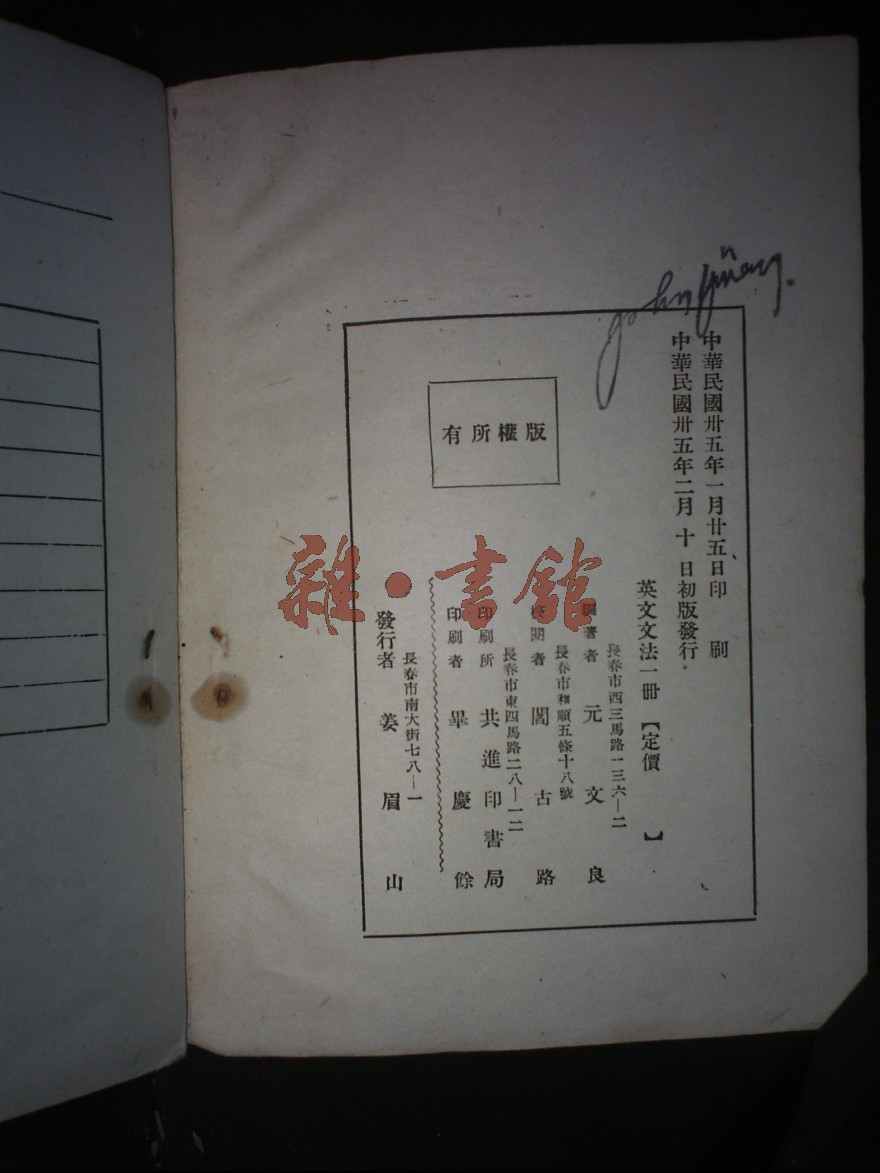 John
中華民國卅五年一月廿五日印　刷
中華民國卅五年二月　十　日初版發行．
英文文法一冊【定價　　　】
長春市西三馬路一三六—二
著者　元　文　良
長春市和順五條十八號
閱者　閻　古　路
長春市東四馬路二八—一二
印刷所　共進印書局
印刷者　畢　慶　餘
長春市南大街七八—一
發行者　姜　眉　山
版權所有
雜·書館